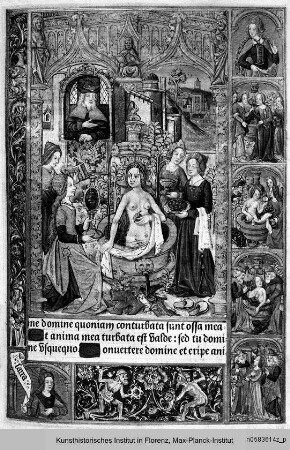 ne domine quoniam conturbata sunt ossa mea
Et anima mea turbata est valde: sed tu domi
ne Usquequo Convertere domine et eripe ani
Kunsthistorisches Institut in Florenz, Max-Planck-Institut
n0583614z_p